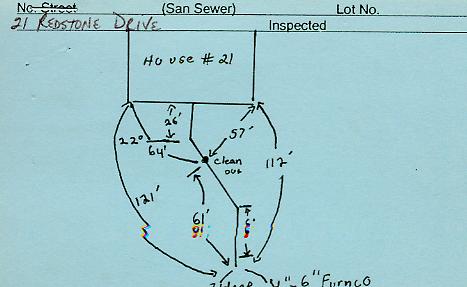 No. Street (San Sewer) Lot No.
21 REDSTONE DRIVE Inspected
House #21
26'
22°
57'
64'
Clean out
112'
121'
61'
6'
4"-6" Furnco